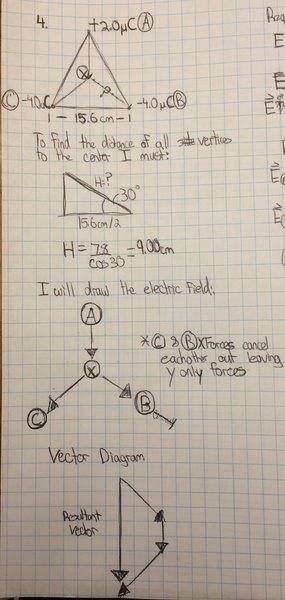 4.
+2.0μC Ⓐ
x
Ⓒ -4.0μC
-4.0μC Ⓑ
1 - 15.6cm - 1
To find the distance of all vertices
to the center I must:
H?
30°
15.6cm/2
H = 7.8/cos30 = 9.00cm
I will draw the electric field:
Ⓐ
x
Ⓒ
Ⓑ
*Ⓒ & Ⓑ X Forces cancel
eachother out leaving
y only forces
Vector Diagram
Resultant
Vector
Req
E
E
E
E